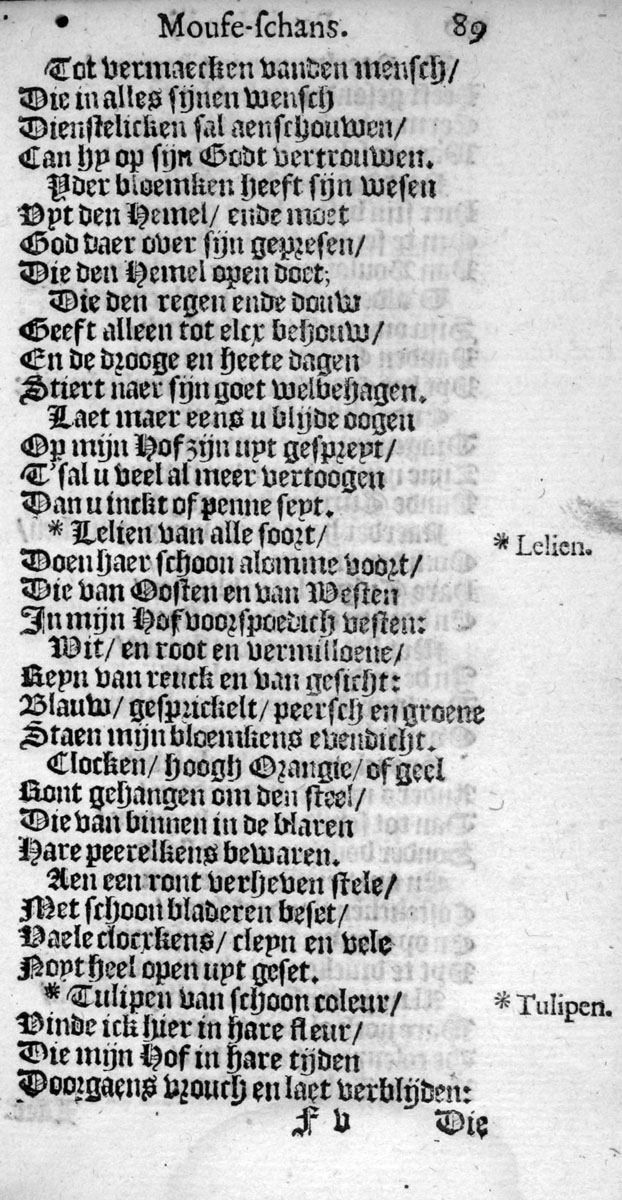 Moufe-schans. 89
Tot vermaecken vanden mensch/
Die in alles sijnen wensch
Dienstelicken sal aenschouwen/
Can hy op sijn Godt vertrouwen.
Yder bloemken heeft sijn wesen
Vyt den Hemel/ ende moet
God daer over sijn gepresen/
Die den Hemel open doet;
Die den regen ende douw
Geeft alleen tot elcx behouw/
En de drooge en heete dagen
Stiert naer sijn goet welbehagen.
Laet maer eens u blijde oogen
Op mijn Hof zijn uyt gespreyt/
T'sal u veel al meer vertoogen
Dan u inckt of penne seyt.
* Lelien van alle soort/
* Lelien.
Doen haer schoon alomme voort/
Die van Oosten en van Westen
In mijn Hof voorspoedich vesten:
Wit/ en root en vermilloene/
Reyn van reuck en van gesicht:
Blauw/ gesprickelt/ peersch en groene
Staen mijn bloemkens evendicht.
Clocken/ hoogh Orangie/ of geel
Ront gehangen om den steel/
Die van binnen in de blaren
Hare peerelkens bewaren.
Aen een ront verheven stele/
Met schoon bladeren beset/
Vaele clocxkens/ cleyn en vele
Noyt heel open uyt geset.
* Tulipen van schoon coleur/
* Tulipen.
Vinde ick hier in hare fleur/
Die mijn Hof in hare tijden
Doorgaens vrouch en laet verblijden:
F v Die